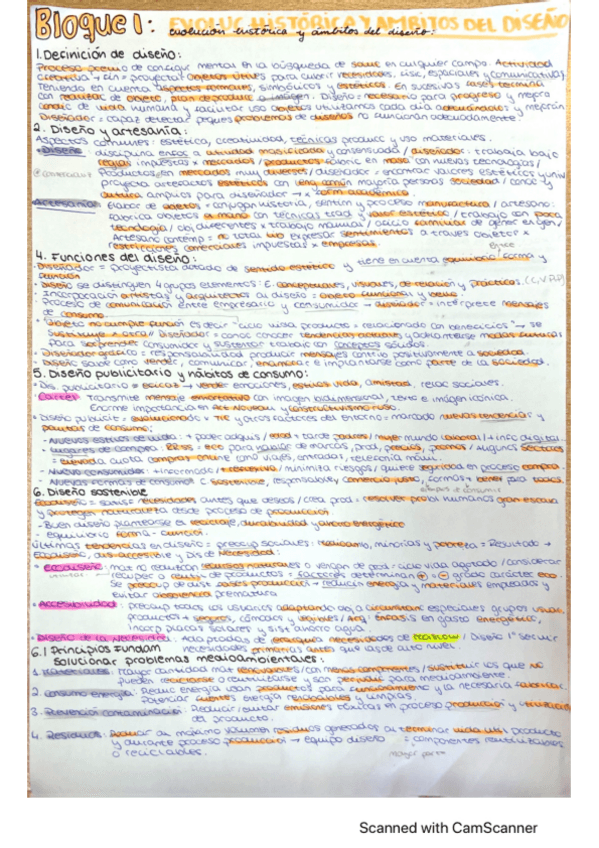 Bloque 1: EVOLUC. HISTÓRICA Y AMBITOS DEL DISEÑO
evolución histórica y ámbitos del diseño:
1. Definición de diseño:
Proceso previo de config mental en la búsqueda de soluc en cualquier campo. Actividad
creativa + fin = proyectar objetos útiles para cubrir necesidades, fisic, espaciales y comunicativas.
Teniendo en cuenta aspectos formales, simbólicos y estéticos. En sucesivas fases termina
con realizac de objeto, plan de produc o imagen. Diseño = necesario para progreso y mejora
condic de vida humana y facilitar uso objetos utilizamos cada día adecuándolos y mejoran
Diseñador = capaz detectar pequeñ problemas de diseños no funcionan adecuadamente.
2. Diseño y artesanía:
Aspectos comunes: estética, creatividad, técnicas producc y uso materiales.
• Diseño: disciplina enfoc a actividad masificada y consensuada / diseñador: trabaja bajo
reglas impuestas x mercados / productos fabric en masa con nuevas tecnologías /
Productos en mercados muy diversos / diseñador = encontrar valores estéticos y
proyecta artefactos estéticos con leng común mayoría personas sociedad / conoc y
cultura amplios para diseñador → x form académica
• Artesanía: hacer de objetos x conjug historia, sentim y proceso manufactura / artesano:
fabrica objetos a mano con técnicas trad y valor estético / trabajo con poca
tecnología / obj diferentes x trabajo manual / negocio familiar de gener en gen /
Artesano contemp: no total lib expresar sentimientos a través objetos x
restricciones comerciales impuestas x empresas.
4. Funciones del diseño:
• Diseñador = proyectista dotado de sentido estético y tiene en cuenta equilibrio forma y
función
• Diseño se distinguen 4 grupos elementos: E. conceptuales, visuales, de relación y prácticos. (C,V,R,P)
• Incorporación artistas y arquitectos al diseño = objeto funcional y bello.
• Proceso de comunicación entre empresario y consumidor → diseñador = intérprete mensajes
de consumo.
• Objeto no cumple función es decir "ciclo vida producto = relacionado con beneficios" → se
sustituye x otro // Diseñador = conoc conocer tendencias recientes y adelantarse modas futuras
para sorprender consumidor y sugestor trabajo con conceptos sólidos.
• Diseñador gráfico = responsabilidad producir mensajes contrib positivamente a sociedad.
• Diseño sabe como vender, comunicar, enamorar e implantarse como parte de la sociedad.
5. Diseño publicitario y hábitos de consumo:
• Dis. publicitario = eficaz → vender emociones, estilos vida, amistad, relac sociales.
• Cartel: Transmite mensaje exhortativo con imagen bidimensional, texto e imagen icónica.
Enorme importancia en Art Noveau y constructivismo ruso.
• Diseño publicit = evolucionado x TIC y otros factores del entorno = marcado nuevas tendencias y
pautas de consumo:
- Nuevos estilos de vida: + poder adquis / edad + tarde padres / mujer mundo laboral / + info digital.
- Lugares de compra: RRSS = eco para hablar de marcas, prod, precios, promos / algunos sectores
= elevada cuota compra online como viajes, entradas, telefonía móvil.
- Nuevo consumidor: + informado / + reflexivo / minimita riesgos / quiere seguridad en proceso compra.
- Nuevas formas de consumo: C. sostenible, responsable y comercio justo, formas + benef para todos.
6. Diseño sostenible
• Ecodiseño = satisf = necesidades antes que deseos / crea prod = resolver probl humanos gran escala
y proteger naturaleza desde proceso de producción.
- Buen diseño plantearse el reciclaje, durabilidad y ahorro energético
- Equilibrio forma - función.
Últimas tendencias en diseño = preocup sociales: reciclado, minorías y pobreza = Resultado →
Ecodiseño, dis. accesible y Dis de Necesidad:
• Ecodiseño: mat no reutilizan
recuper o reutiliz de productos = factores determinan + o - grado carácter eco.
Se preocup de dist. fases producción → reducir energía y materiales empleados y
evitar obsolencia prematura
• Accesibilidad: preocup todos los usuarios adaptando obj a circunstanc especiales grupos usuar.
productos + seguros, cómodos y legibles / Arq: énfasis en gasto energético,
incorp placas solares y sist ahorro agua.
• Diseño de la Necesidad: Adap prod a jerarquía necesidades de MASLOW / Diseño 1º servir
necesidades primarias antes que las de alto nivel.
6.1 Principios Fundam
solucionar problemas medioambientales:
1. Materiales: Mayor cantidad mat renovables / con menos componentes / sustituir los que no
pueden reciclarse o reutilizarse y son perjudic para medioambiente.
2. Consumo energía: Reduc energía usan productos para funcionamiento y la necesaria fabricac.
Potenciar fuentes energía renovables y limpias.
3. Prevención contaminación: Reducir / evitar emisiones tóxicas en proceso producción y utilización
del producto.
4. Residuos: Reducir al máximo volumen residuos generados al terminar vida útil producto
y durante proceso producción → equipo diseño = componentes reutilizables
o reciclables.
mayor parte
Scanned with CamScanner